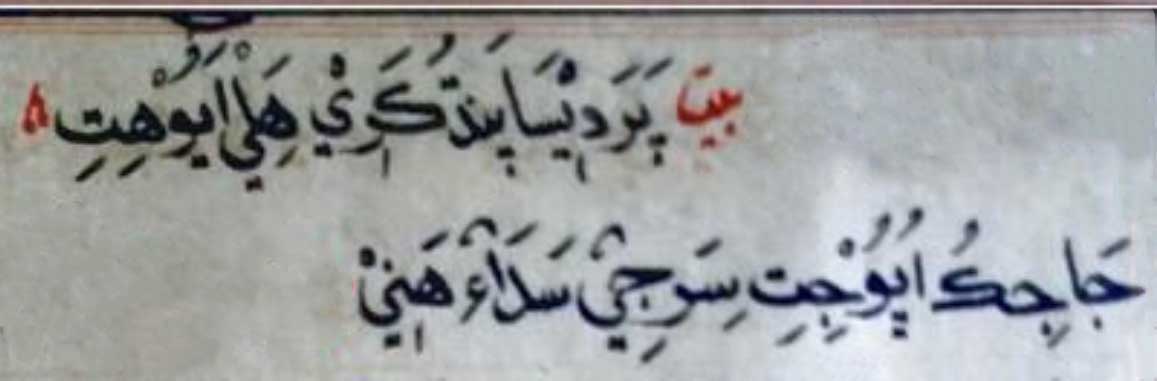 بيت پَرَدِيْسَا پَنڌُ ڪَرِيْ هَلِيْ اَيُوْ هِتِ ۸
جَاجِڪُ اَيُوْ جِتِ سِرَ جِيْ سَدَآءِ هَنِيْ